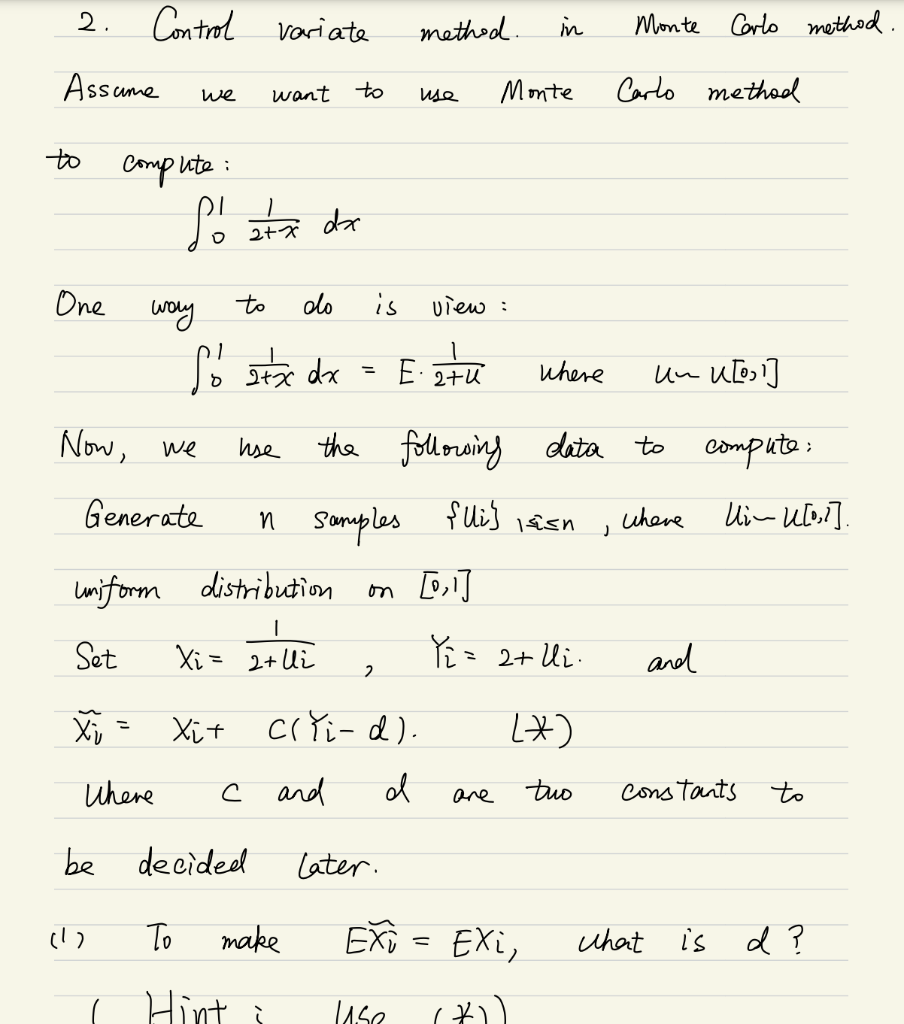 2. Control variate method. in Monte Carlo method.
Assume we want to use Monte Carlo method
to compute:
∫₀¹ 1/(2+x) dx
One way to do is view:
∫₀¹ 1/(2+x) dx = E·1/(2+U) where U~U[0,1]
Now, we use the following data to compute:
Generate n samples {Ui} 1≤i≤n, where Ui~U[0,1].
uniform distribution on [0,1]
Set Xi = 1/(2+Ui), Yi = 2+Ui. and
X̃i = Xi + C(Yi-d). (*)
where C and d are two constants to
be decided later.
(1) To make EX̃i = EXi, what is d?
( Hint: use (*))